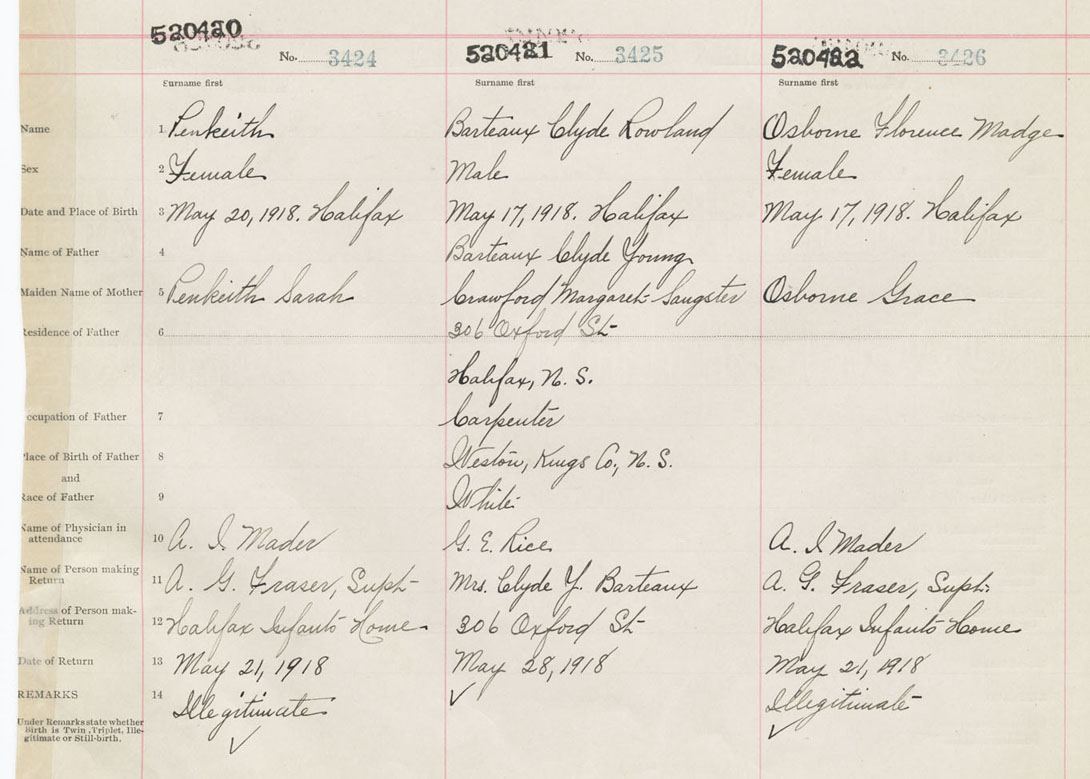 520420 520421 520422
No. 3424 No. 3425 No. 3426
Surname first Surname first Surname first
Name 1 Penkeith Barteaux Clyde Rowland Osborne Florence Madge
Sex 2 Female Male Female
Date and Place of Birth 3 May 20, 1918. Halifax May 17, 1918. Halifax May 17, 1918. Halifax
Name of Father 4 Barteaux Clyde Young
Maiden Name of Mother 5 Penkeith Sarah Crawford Margaret Sangster Osborne Grace
Residence of Father 6 306 Oxford St
Halifax, N. S.
ccupation of Father 7 Carpenter
Place of Birth of Father 8 Weston, Kings Co., N. S.
and
Race of Father 9 White
Name of Physician in
attendance 10 A. I. Mader G. E. Rice A. I Mader
Name of Person making
Return 11 A. G. Fraser, Supt Mrs. Clyde Y. Barteaux A. G. Fraser, Supt.
Address of Person mak-
ing Return 12 Halifax Infants Home 306 Oxford St Halifax Infants Home
Date of Return 13 May 21, 1918 May 28, 1918 May 21, 1918
REMARKS 14 Illegitimate ✓ Illegitimate
Under Remarks state whether
Birth is Twin, Triplet, Ille-
gitimate or Still-birth. ✓ ✓